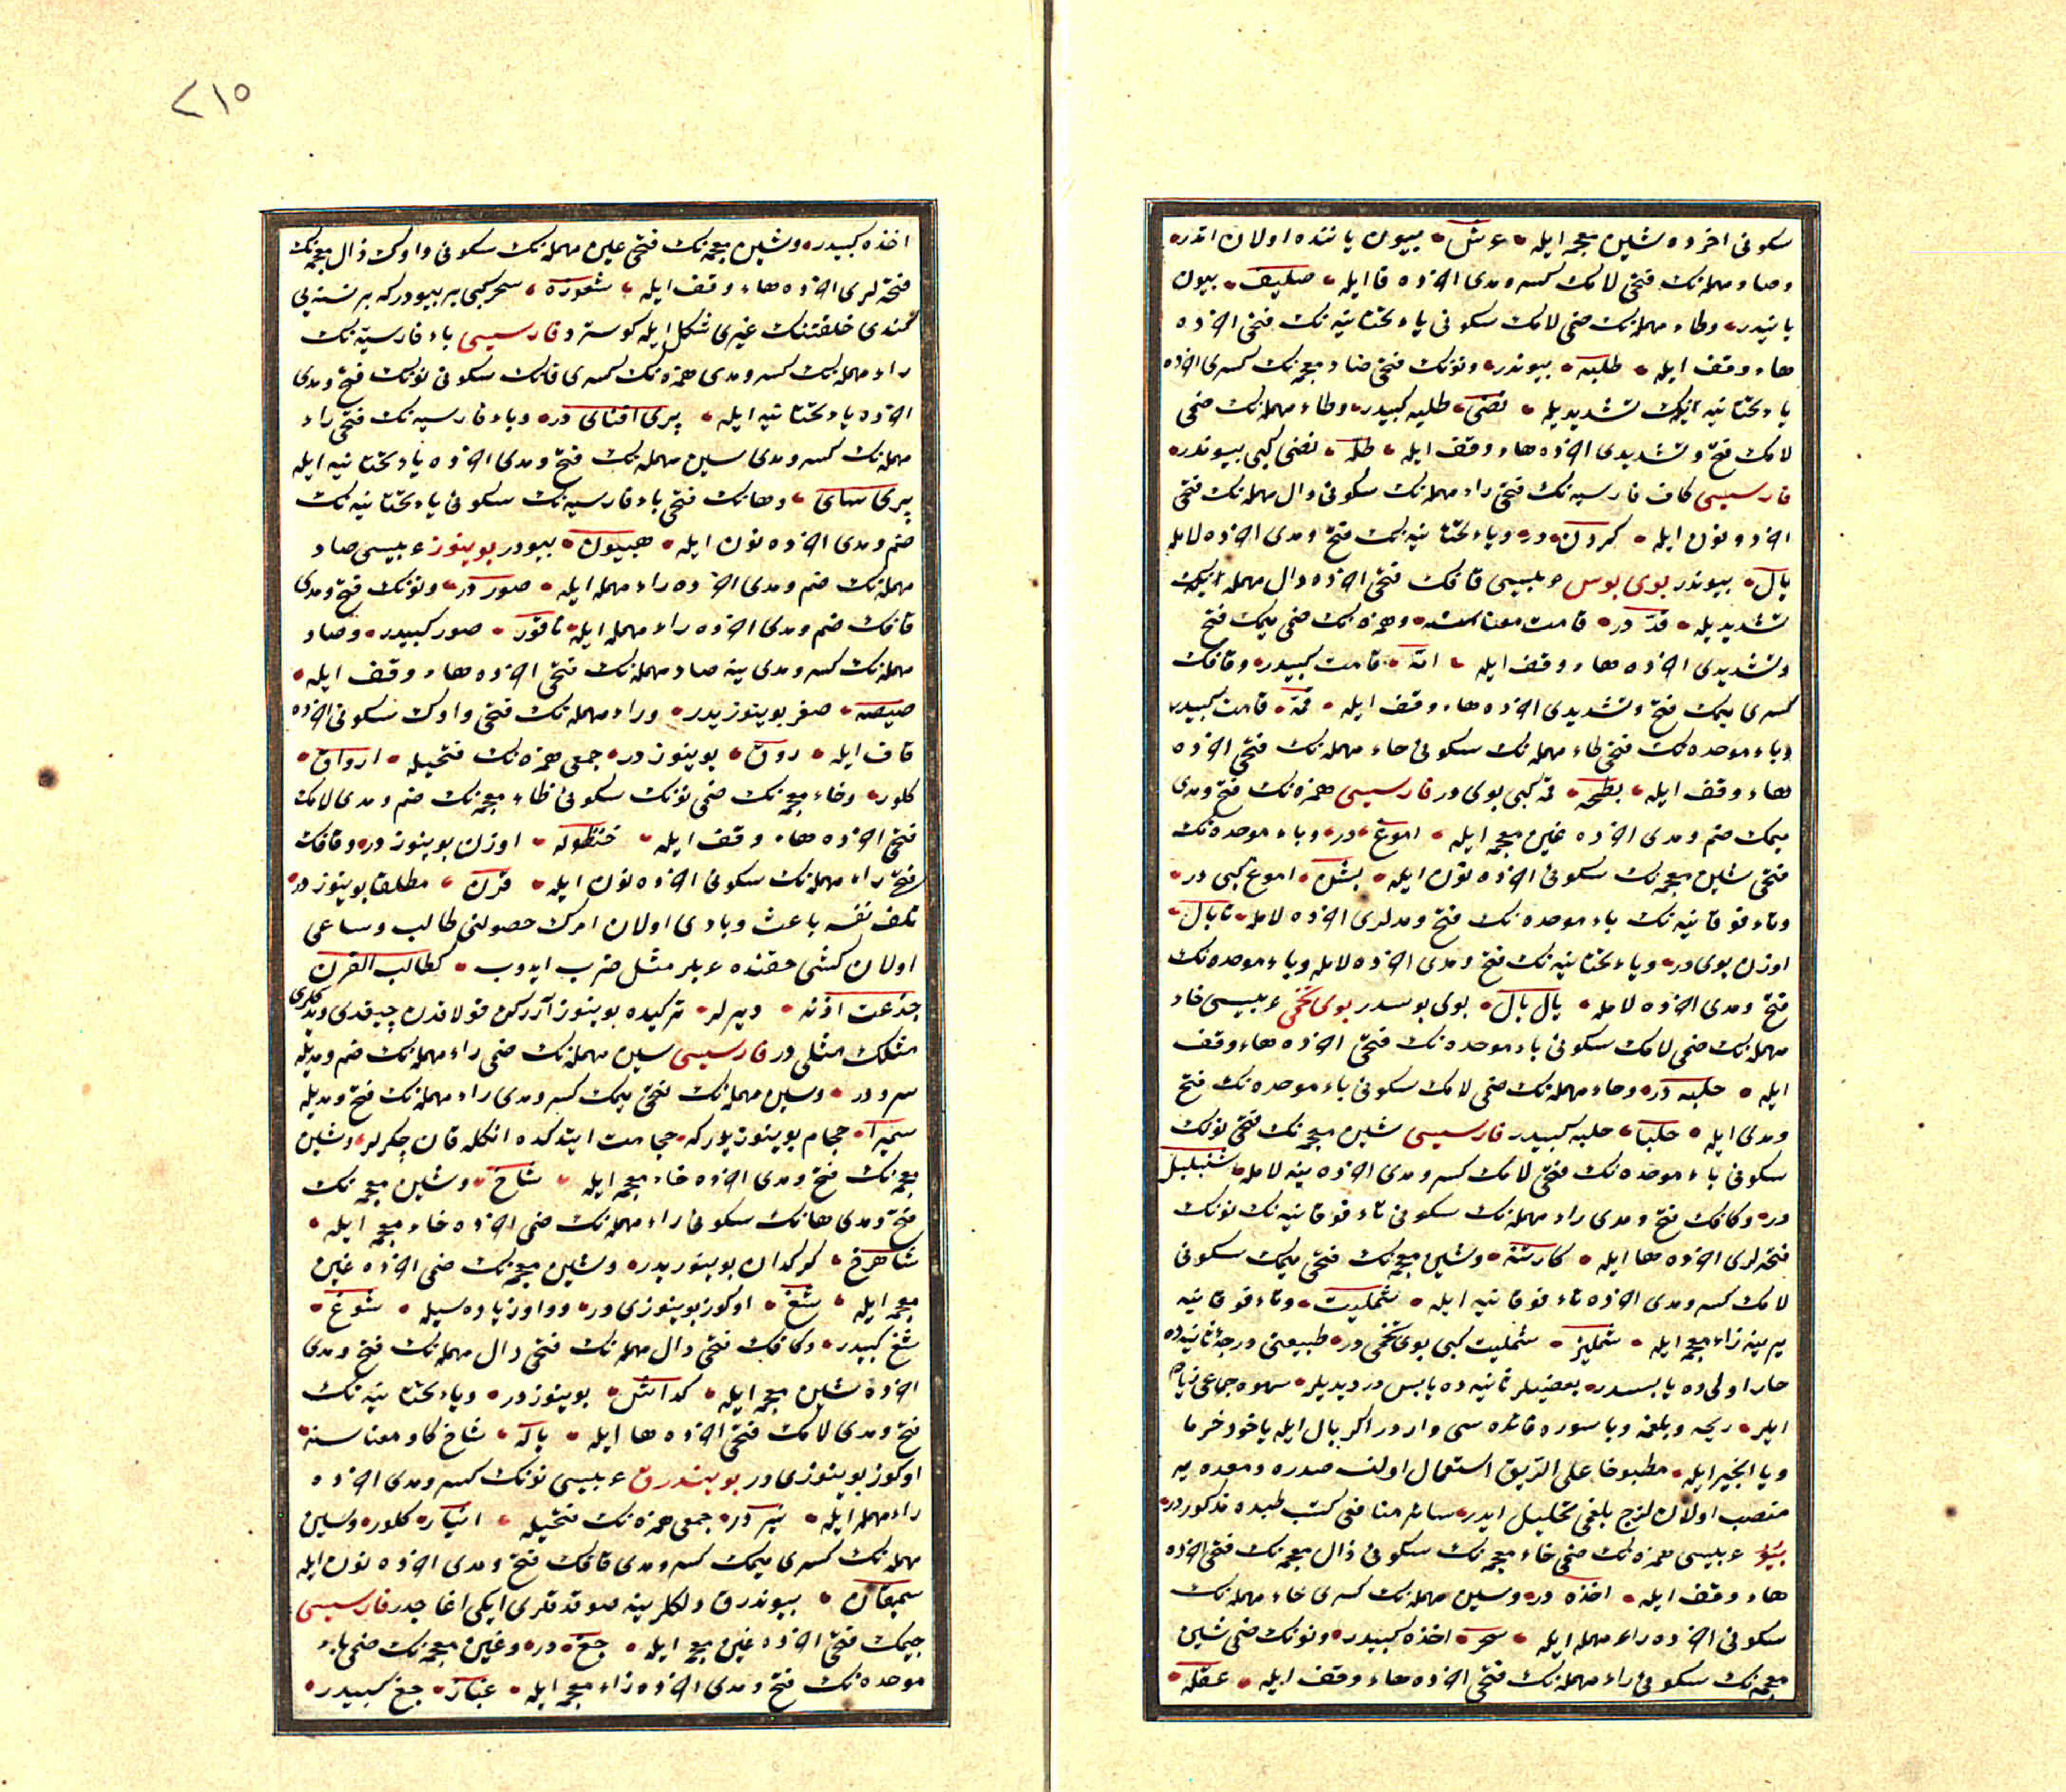 سكونی اخرده شین معجمه ایله عرش بیون یاننده اولان اتدر
وصاد مهمله نك فتحی لامك كسر و مدی اخرده فا ایله صلیف بیون
یانیدر وطاء مهمله نك ضمی لامك سكونی یاء تحتانیه نك فتحی اخرده
هاء وقف ایله طلیه بیوندر ونونك فتحی ضاد معجمه نك كسری اخرده
یاء تحتانیه نك تشدیدیله نضی طلیه كبیدر وطاء مهمله نك ضمی
لامك فتح و تشدیدی اخرده هاء وقف ایله طله نضی كبی بیوندر
فارسیسی كاف فارسیه نك فتحی راء مهمله نك سكونی دال مهمله نك فتحی
اخرده نون ایله كردن در ویاء تحتانیه نك فتح و مدی اخرده لامله
یال بیوندر بوی بوس عربیسی قافك فتحی اخرده دال مهمله نك
تشدیدیله قد در قامت معناسنه وهمزه نك ضمی میمك فتح
وتشدیدی اخرده هاء وقف ایله امه قامت كبیدر وقافك
كسری میمك فتح و تشدیدی اخرده هاء وقف ایله قمه قامت كبیدر
وباء موحده نك فتحی طاء مهمله نك سكونی حاء مهمله نك فتحی اخرده
هاء وقف ایله بطحه قمه كبی بوی در فارسیسی همزه نك فتح و مدی
میمك ضم و مدی اخرده غین معجمه ایله اموغ در وباء موحده نك
فتحی شین معجمه نك سكونی اخرده نون ایله بشن اموغ كبی در
وتاء فوقانیه نك باء موحده نك فتح و مدلری اخرده لامله تابال
اوزن بوی در ویاء تحتانیه نك فتح و مدی اخرده لامله وباء موحده نك
فتح و مدی اخرده لامله یال بال بوی بوسدر بوی تخمی عربیسی حاء
مهمله نك ضمی لامك سكونی باء موحده نك فتحی اخرده هاء وقف
ایله حلبه در وحاء مهمله نك ضمی لامك سكونی باء موحده نك فتح
ومدی ایله حلبا حلبه كبیدر فارسیسی شین معجمه نك فتحی نونك
سكونی باء موحده نك فتحی لامك كسر و مدی اخرده ینه لامله شنبلیل
در وكافك فتح و مدی راء مهمله نك سكونی تاء فوقانیه نك نونك
فتحه لری اخرده ها ایله كارتنه وشین معجمه نك فتحی میمك سكونی
لامك كسر و مدی اخرده تاء فوقانیه ایله شملیت وتاء فوقانیه
یرینه زاء معجمه ایله شملیز شملیت كبی بوی تخمی در طبیعتی درجۀ ثانیه ده
حار اولی ده یابسدر بعضیلر ثانیه ده یابس در دیدیلر
ایلر ریحه و بلغمه و باسوره فائده سی واردر اكر بال ایله یاخود خرما
ویا انجیر ایله مطبوخا علی الریق استعمال اولنسه صدره و معده یه
منصب اولان لزج بلغمی تحلیل ایدر سائر منافعی كتب طبده مذكوردر
عربیسی همزه نك ضمی خاء معجمه نك سكونی ذال معجمه نك فتحی اخرده
هاء وقف ایله اخذه در وسین مهمله نك كسری حاء مهمله نك
سكونی اخرده راء مهمله ایله سحر اخذه كبیدر ونونك ضمی شین
معجمه نك سكونی راء مهمله نك فتحی اخرده هاء وقف ایله
٢١٥
اخذه كبیدر وشین معجمه نك فتحی عین مهمله نك سكونی واوك ذال معجمه نك
فتحه لری اخرده هاء وقف ایله شعوذه سحر كبی بر بیودركه بر نسنه یی
كندی خلقتنك غیری شكل ایله كوستر فارسیسی باء فارسیه نك
راء مهمله نك كسر و مدی همزه نك كسری فانك سكونی نونك فتح و مدی
اخرده یاء تحتانیه ایله پری افنای در وباء فارسیه نك فتحی راء
مهمله نك كسر و مدی سین مهمله نك فتح و مدی اخرده یاء تحتانیه ایله
پری سای وهانك فتحی باء فارسیه نك سكونی یاء تحتانیه نك
ضم و مدی اخرده نون ایله هپیون بیودر بوینوز عربیسی صاد
مهمله نك ضم و مدی اخرده راء مهمله ایله صور در ونونك فتح و مدی
قافك ضم و مدی اخرده راء مهمله ایله ناقور صور كبیدر وصاد
مهمله نك كسر و مدی ینه صاد مهمله نك فتحی اخرده هاء وقف ایله
صیصه صغر بوینوزیدر وراء مهمله نك فتحی واوك سكونی اخرده
قاف ایله روق بوینوز در جمعی همزه نك فتحیله ارواق
كلور وخاء معجمه نك ضمی نونك سكونی ظاء معجمه نك ضم و مدی لامك
فتحی اخرده هاء وقف ایله خنظوله اوزن بوینوز در وقافك
فتحی راء مهمله نك سكونی اخرده نون ایله قرن مطلقا بوینوز در
تلف نفسه باعث و بادی اولان امرك حصولنی طالب و ساعی
اولان كشی حقنده عربلر مثل ضرب ایدوب كطالب القرن
جذعت اذنه دیرلر تركیده بوینوز آرركن قولاقدن چیقدی دیدكلری
مثلك مثلی در فارسیسی سین مهمله نك ضمی راء مهمله نك ضم و مدیله
سرو در وسین مهمله نك فتحی میمك كسر و مدی راء مهمله نك فتح و مدیله
سمیرا حجام بوینوزیدركه حجامت ایتدكده انكله قان چكرلر وشین
معجمه نك فتح و مدی اخرده خاء معجمه ایله شاخ وشین معجمه نك
فتح و مدی هانك سكونی راء مهمله نك ضمی اخرده خاء معجمه ایله
شاهرخ كركدان بوینوزیدر وشین معجمه نك ضمی اخرده غین
معجمه ایله شغ اوكوز بوینوزی در وواو زیاده سیله شوغ
شغ كبیدر وكافك فتحی دال مهمله نك فتحی دال مهمله نك فتح و مدی
اخرده شین معجمه ایله كداش بوینوز در ویاء تحتانیه نك
فتح و مدی لامك فتحی اخرده ها ایله یاله شاخ كاو معناسنه
اوكوز بوینوزی در بویندرق عربیسی نونك كسر و مدی اخرده
راء مهمله ایله نیر در جمعی همزه نك فتحیله انیار كلور وسین
مهمله نك كسری میمك كسر و مدی قافك فتح و مدی اخرده نون ایله
سمیقان بیوندرق دلكلرینه صوقدقلری ایكی اغاجدر فارسیسی
جیمك فتحی اخرده غین معجمه ایله جغ در وغین معجمه نك ضمی باء
موحده نك فتح و مدی اخرده زاء معجمه ایله غباز جغ كبیدر